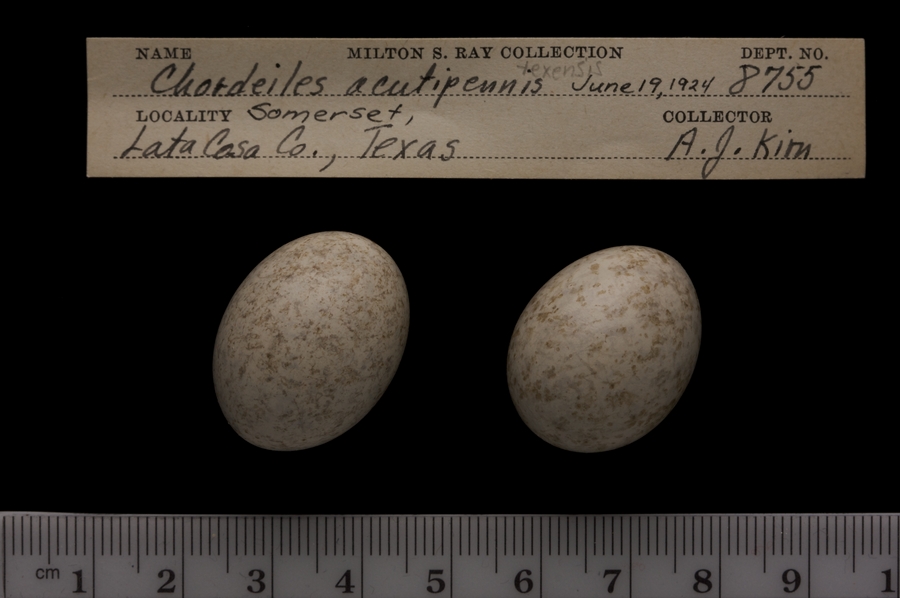 NAME MILTON S. RAY COLLECTION DEPT. NO.
texensis
Chordeiles acutipennis June 19, 1924 8755
LOCALITY Somerset, COLLECTOR
Lata Casa Co., Texas A. J. Kirn
cm 1 2 3 4 5 6 7 8 9 1